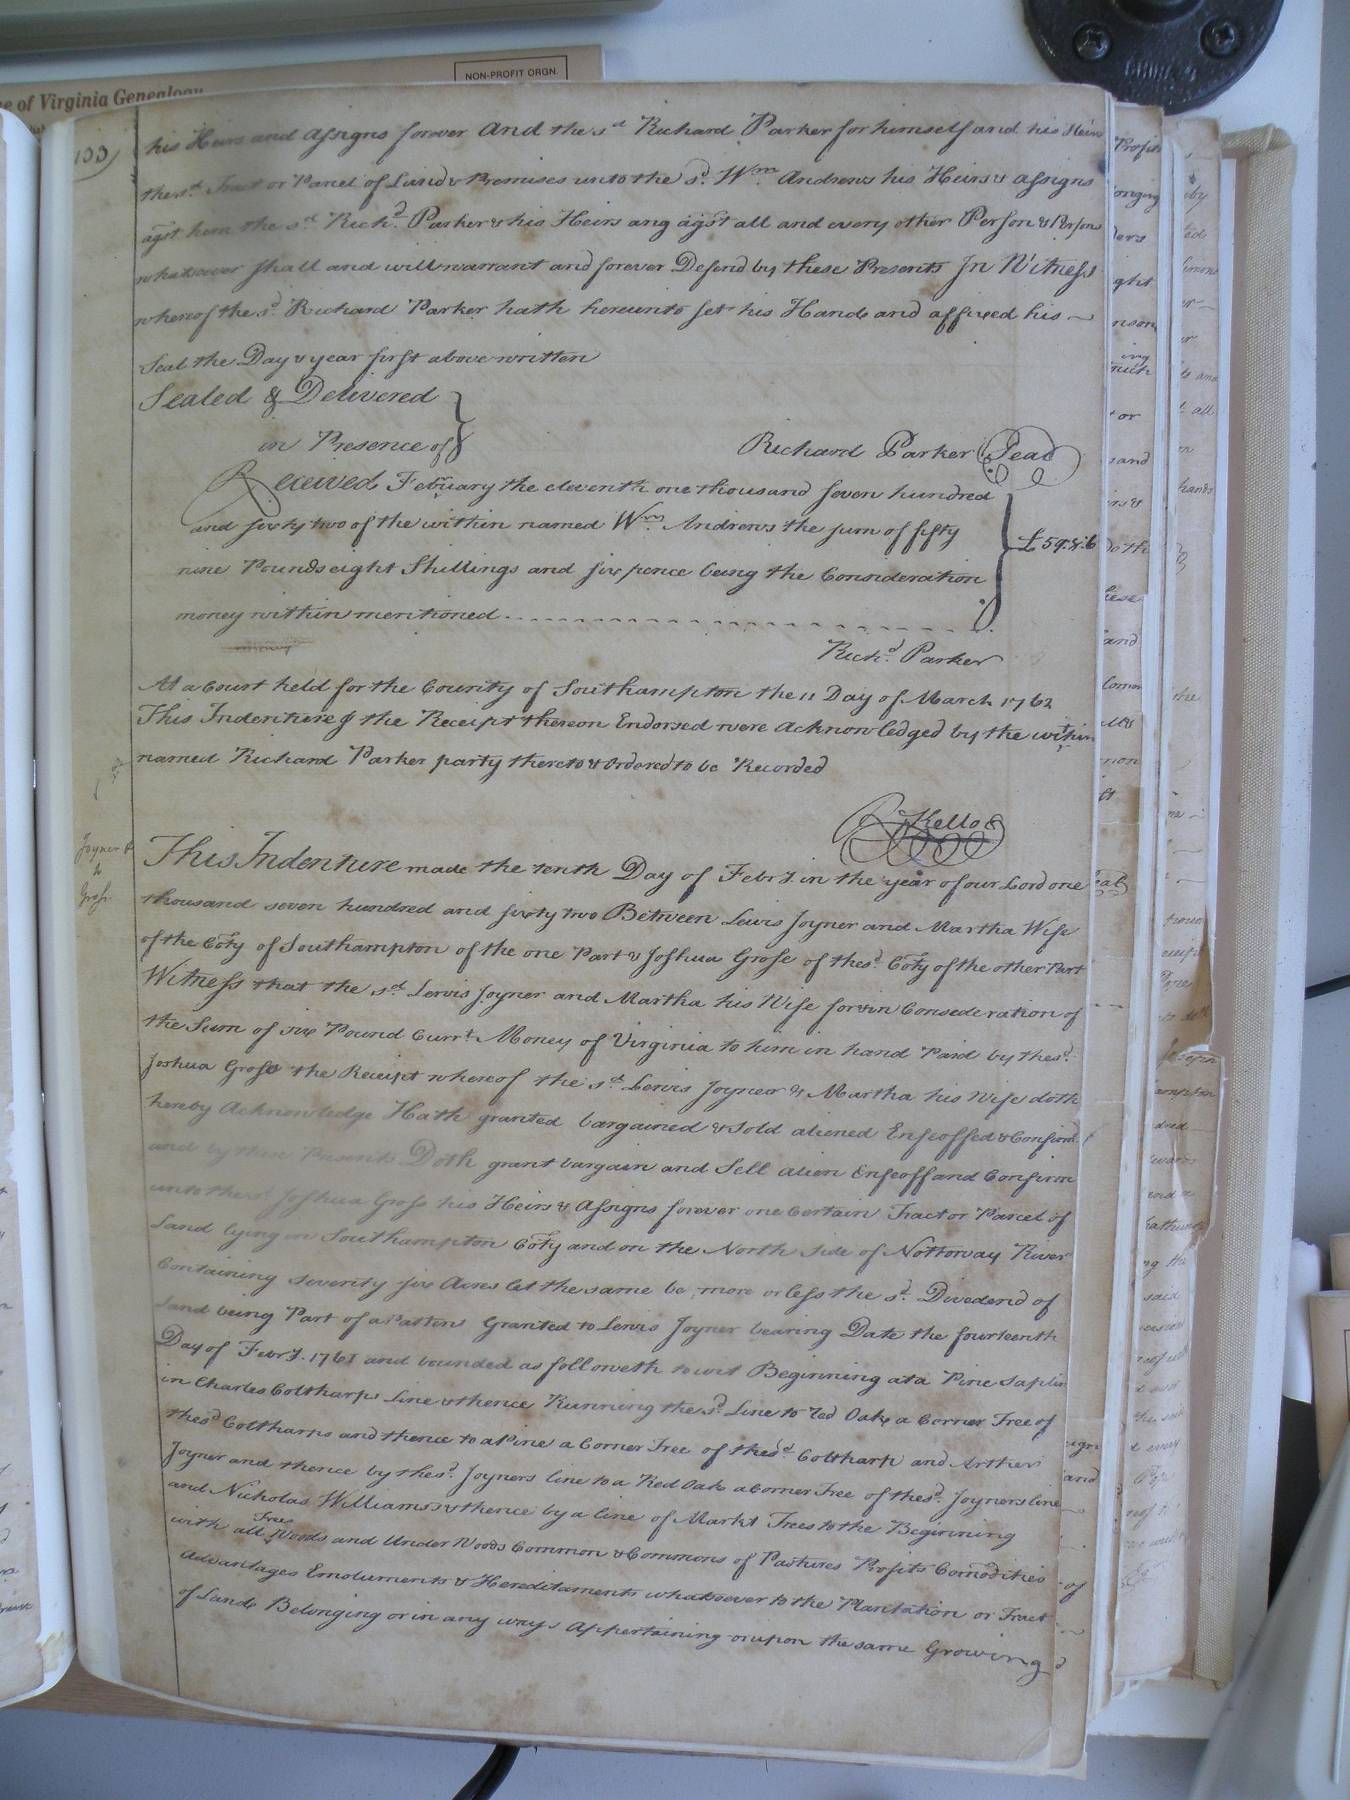 NON-PROFIT ORGN.
e of Virginia Genealogy
133
his Heirs and Assigns forever And the sd Richard Parker for himself and his Heirs
the sd. Tract or Parcel of Land & Premises unto the sd. Wm. Andrews his Heirs & Assigns
agst him the sd. Richd. Parker & his Heirs ang agst all and every other Person & Persons
whatsoever shall and will warrant and forever Defend by these Presents In Witness
whereof the sd. Richard Parker hath hereunto set his Hand and affixed his
Seal the Day & year first above written
Sealed & Delivered
in Presence of
Richard Parker Seal
Received February the eleventh one thousand seven hundred
and sixty two of the within named Wm. Andrews the sum of fifty
nine Pounds eight Shillings and six pence being the Consideration
£59.8.6
money within mentioned
Richd. Parker
At a Court held for the County of Southampton the 11 Day of March 1762
This Indenture & the Receipt thereon Endorsed were Acknowledged by the within
named Richard Parker party thereto & Ordered to be Recorded
R Kello
Joyner &
to
Grose
This Indenture made the tenth Day of Febry. in the year of our Lord one
thousand seven hundred and sixty two Between Lewis Joyner and Martha Wife
of the Coty of Southampton of the one Part & Joshua Grose of the sd. Coty of the other Part
Witness that the sd. Lewis Joyner and Martha his Wife for & in Consederation of
the Sum of six Pound Currt. Money of Virginia to him in hand Paid by the sd.
Joshua Grose the Receipt whereof the sd. Lewis Joyner & Martha his Wife doth
hereby Acknowledge Hath granted bargained & Sold aliened Enfeoffed & Confirmd
and by these Presents Doth grant bargain and Sell alien Enfeoff and Confirm
unto the sd. Joshua Grose his Heirs & Assigns forever one Certain Tract or Parcel of
Land lying in Southampton Coty and on the North side of Nottoway River
Containing seventy six Acres let the same be more or less the sd. Divedend of
Land being Part of a Patten Granted to Lewis Joyner bearing Date the fourteenth
Day of Febry. 1761 and bounded as followeth to wit Beginning at a Pine Saplin
in Charles Coltharps Line & thence Running the sd. Line to red Oak a Corner Tree of
the sd Coltharps and thence to a Pine a Corner Tree of the sd. Coltharp and Arther
Joyner and thence by the sd. Joyners line to a Red Oak a Corner Tree of the sd. Joyners line
and Nicholas Williams's & thence by a line of Markt Trees to the Beginning
Trees
with all Woods and Under Woods Common & Commons of Pastures Profits Comodities
Advantages Emoluments & Hereditaments whatsoever to the Plantation or Tract
of Land Belonging or in any ways Appertaining or upon the same Growing